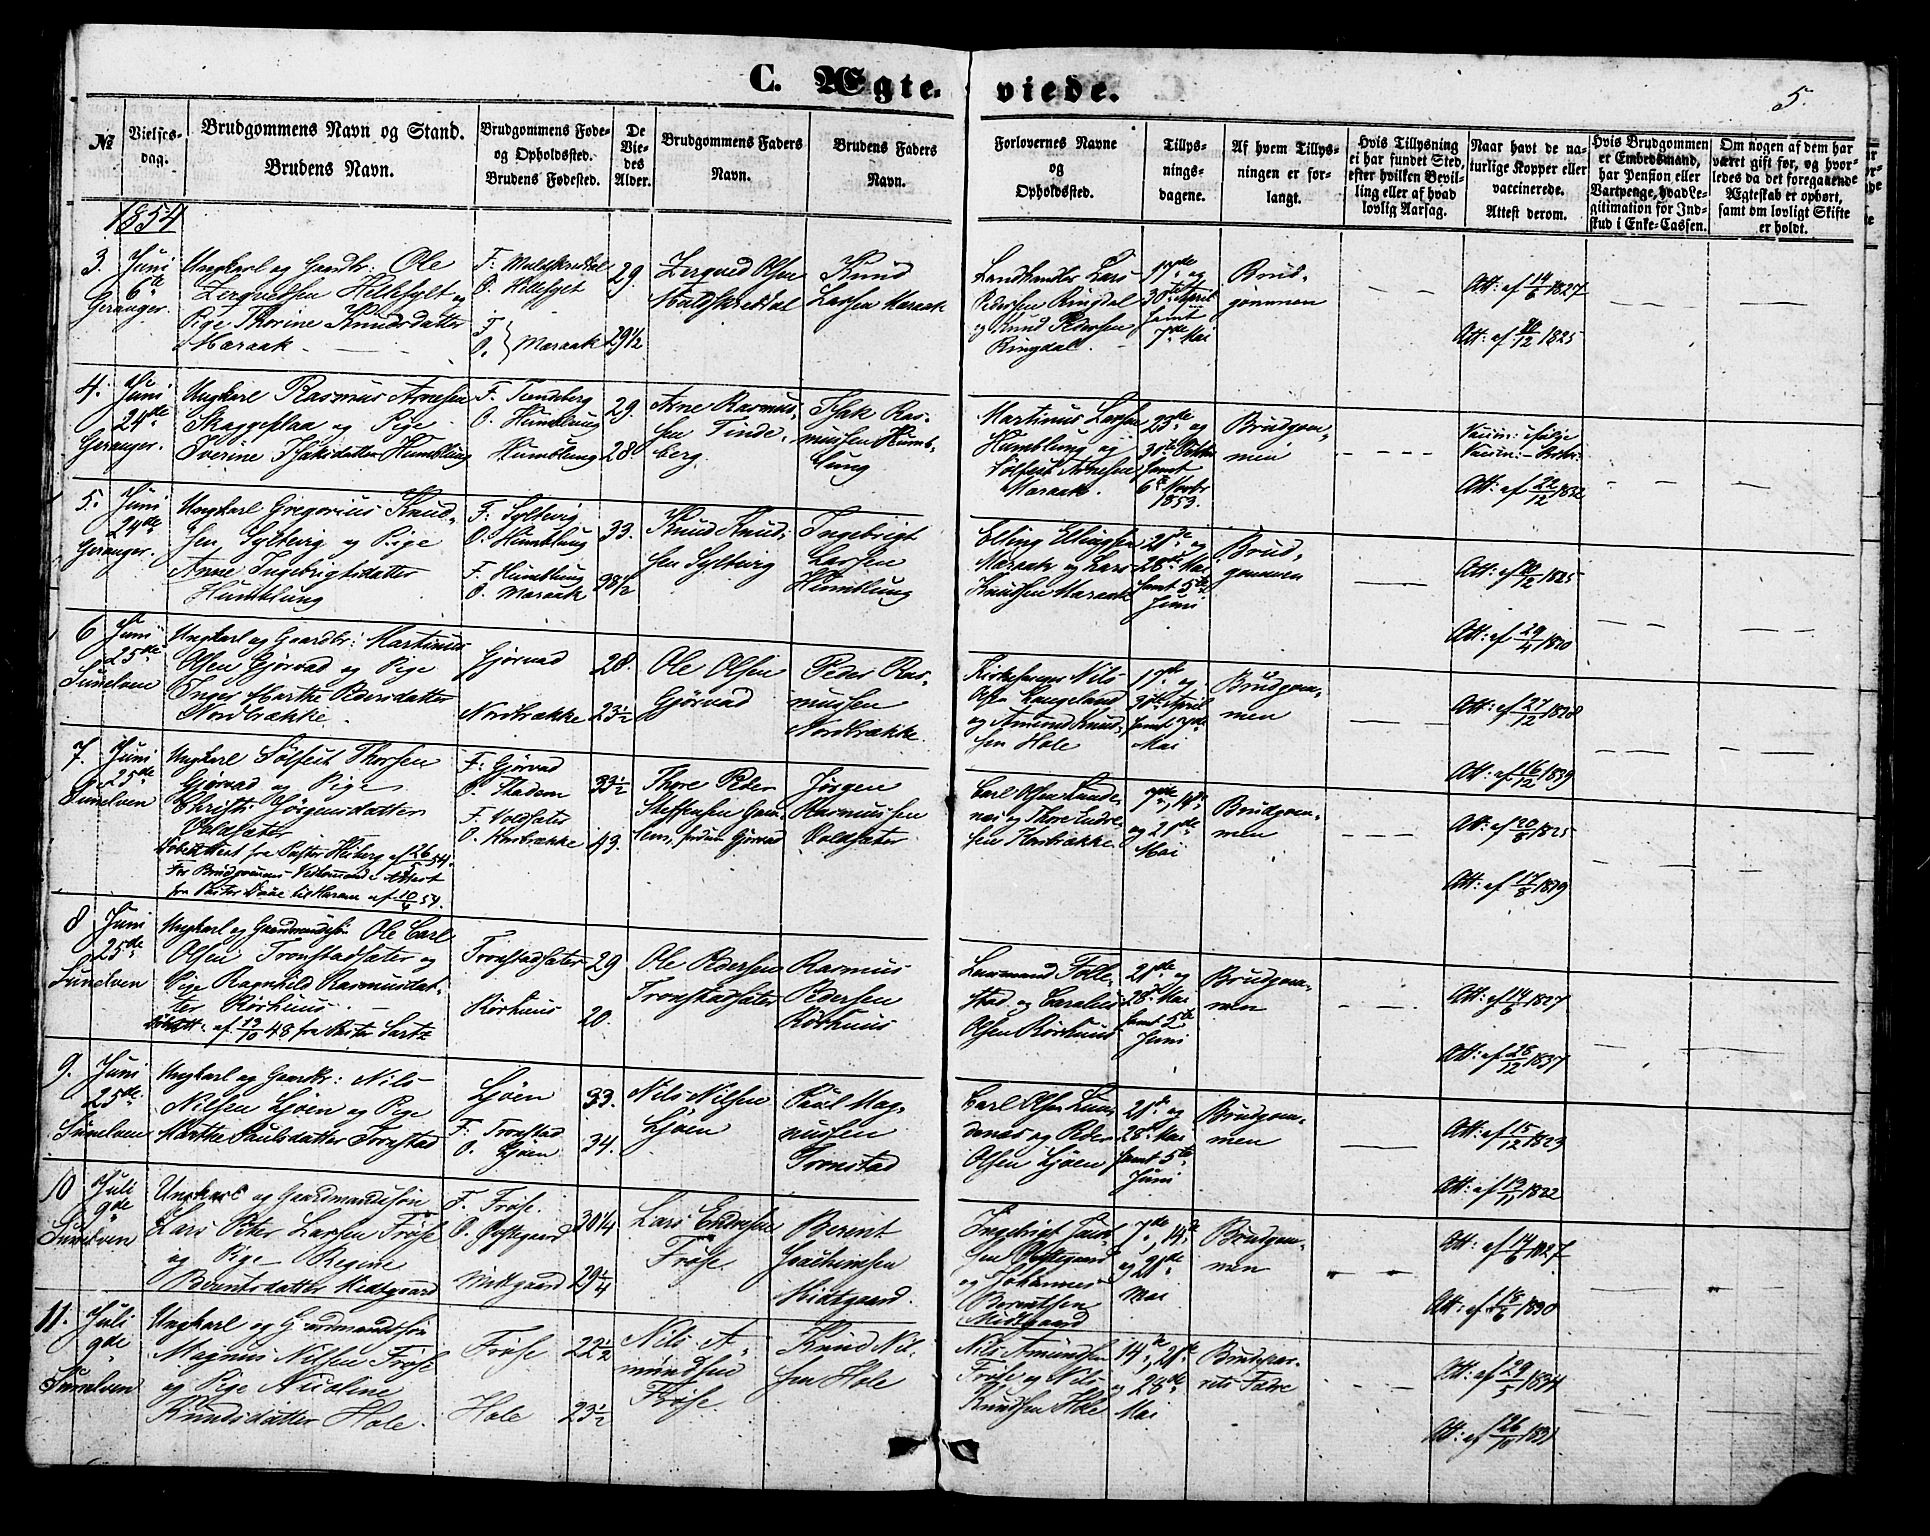 C. Ægte-viede.
5.
№
Vielses-
dag.
Brudgommens Navn og Stand.
Brudens Navn.
Brudgommens Føde-
og Opholdssted.
Brudens Fødested.
De
Vie-
des
Alder.
Brudgommens Faders
Navn.
Brudens Faders
Navn.
Forlovernes Navne
og
Opholdssted.
Tillys-
nings-
dagene.
Af hvem Tillys-
ningen er for-
langt.
Hvis Tillysning
ei har fundet Sted,
efter hvilken Bevil-
ling eller af hvad
lovlig Aarsag.
Naar havt de na-
turlige Kopper eller
vaccinerede.
Attest derom.
Hvis Brudgommen
er Embedsmand,
har Pension eller
Vartpenge, hvad Le-
gitimation for Ind-
skud i Enke-Cassen.
Om nogen af dem har
været gift før, og hvor-
ledes da det foregaaende
Ægteskab er ophørt,
samt om lovligt Skifte
er holdt.
1854
3.
Juni
6te
Geranger.
Ungkarl og Gaardbr: Ole
Zerquedsen Hellesylt og
Pige Thorine Knudsdatter
Maraak
O. Hellesylt
F.
O. } Maraak
29.
29 1/2
Zerqued Olsen
Knud
Larsen Maraak
Landhandler Lars
Pedersen Ringdal
og Knud Pedersen
Ringdal.
17de og
30te April
samt
7de Mai
Brud-
gommen
Att: af 14/6 1827
Att: af 26/12 1825
4.
Juni
24de
Geranger.
Ungkarl Rasmus Arnesen
Skaggeflaa og Pige
Iverine Isaksdatter Humblung
F. Tindeberg
O. Humblung
Humblung
29.
28.
Arne Rasmus-
sen Tinde-
berg.
Isak Ras-
mussen Humb-
lung
Martinus Larsen
Humblung og
Sølfest Arnesen
Maraak.
23de og
31te Octbr
samt
6te Novbr
1853.
Brudgom-
men
Att: af 22/12 1832
5.
Juni
24de
Geranger.
Ungkarl Gregorius Knud-
sen Syltevig og Pige
Anne Ingebrigtsdatter
Humblung
F. Syltevig
O. Humblung
F. Humblung
O. Maraak
33.
38 1/2
Knud Knud-
sen Syltevig
Ingebrigt
Larsen
Humblung
Elling Ellingsen
Maraak og Lars
Knudsen Maraak
21de og
28de Mai
samt 5te
Juni
Brud-
gommen
Att: af 1825
Att: af 29/4 1820
6
Juni
25de
Sunelven
Ungkarl og Gaardbr: Martinus
Olsen Gjørvad og Pige
Inger Marthe Pedersdatter
Nordbrække.
Gjørvad
Nordbrække
28.
23 1/2
Ole Olsen
Gjørvad
Peder Ras-
mussen
Nordbrække.
Kirkesanger Nils
Olsen Langeland
og Amund Knud-
sen Hole
17de og
30te April
samt 7de
Mai
Brudgom-
men
Att: af 27/12 1828
Att: af 16/12 1839
7.
Juni
25de
Sunelven
Ungkarl Sølfest Thorsen
Gjørvad og Pige
Christi Jørgensdatter
Voldsæter
Attest fra Pastor Heiberg af 26/5 54.
For Brudgommens Vedkommende Attest
fra Pastor Daae til Haram af 10/6 54.
F. Gjørvad
O. Stadem
F. Voldsæter
O. Hordrække
33 1/2
49.
Thore Peder
Steffensen
Gjørvad
Jørgen
Rasmussen
Voldsæter
Carl Olsen Sunde-
næs og Thore Endre-
sen
7de, 14de
og 21de
Mai
Brudgom-
men
Att: af 20/8 1825
Att: af 17/8 1839
8
Juni
25de
Sunelven
Ungkarl og Gaardmandssøn Ole Carl
Olsen Tronstadsæter og
Pige Ragnhild Rasmusdat-
ter Rørhuus
af 48 fra Pastor Sartz
Tronstadsæter
Rørhuus
29
20.
Ole Pedersen
Tronstadsæter
Rasmus
Pedersen
Rørhuus
Lensmand Tolle-
stad og
Olsen Rørhuus
21de og
28de Mai
samt 5te
Juni
Brudgom-
men
Att: af 14/6 1827
Att: af 28/12 1837
9.
Juni
25de
Sunelven
Ungkarl og Gaardbr: Nils
Nilsen Ljøen og Pige
Marthe Paulsdatter Tronstad
Ljøen
F. Tronstad
O. Ljøen
33.
34.
Nils Nilsen
Ljøen
Paul Mag-
nussen
Tronstad
Carl Olsen Sun-
denæs og Peder
Olsen Ljøen
21de og
28de Mai
samt 5te
Juni
Brudgom-
men
Att: af 15/12 1823
Att: af 1822
10
Juli
9de
Sunelven
Ungkarl og Gaardmandssøn
Lars Peter Larsen Frøse
og Pige Regine
Berentsdatter Midtgaard
F. Frøse.
Midtgaard
30 1/4
29 1/4
Lars Endresen
Frøse
Berent
Joachimsen
Midtgaard.
Ingebrigt
og Johannes
Berentsen
Midtgaard
7de, 14de
og 21de
Mai
Brudgom-
men
Att: af 14/6 1827
Att: af 18/6 1830
11.
Juli
9de
Sunelven
Ungkarl og Gaardmandssøn
Magnus Nilsen Frøse
og Pige Nicoline
Knudsdatter Hole.
Frøse
Hole
22 1/2
23 1/2
Nils A-
mundsen
Frøse
Knud Nil-
sen Hole
Nils Amundsen
Frøse og Nils
Knudsen Hole
14de, 21de
og 28de
Mai
Brudepar-
rets Fædre
Att: af 29/5 1834
Att: af 26/10 1831